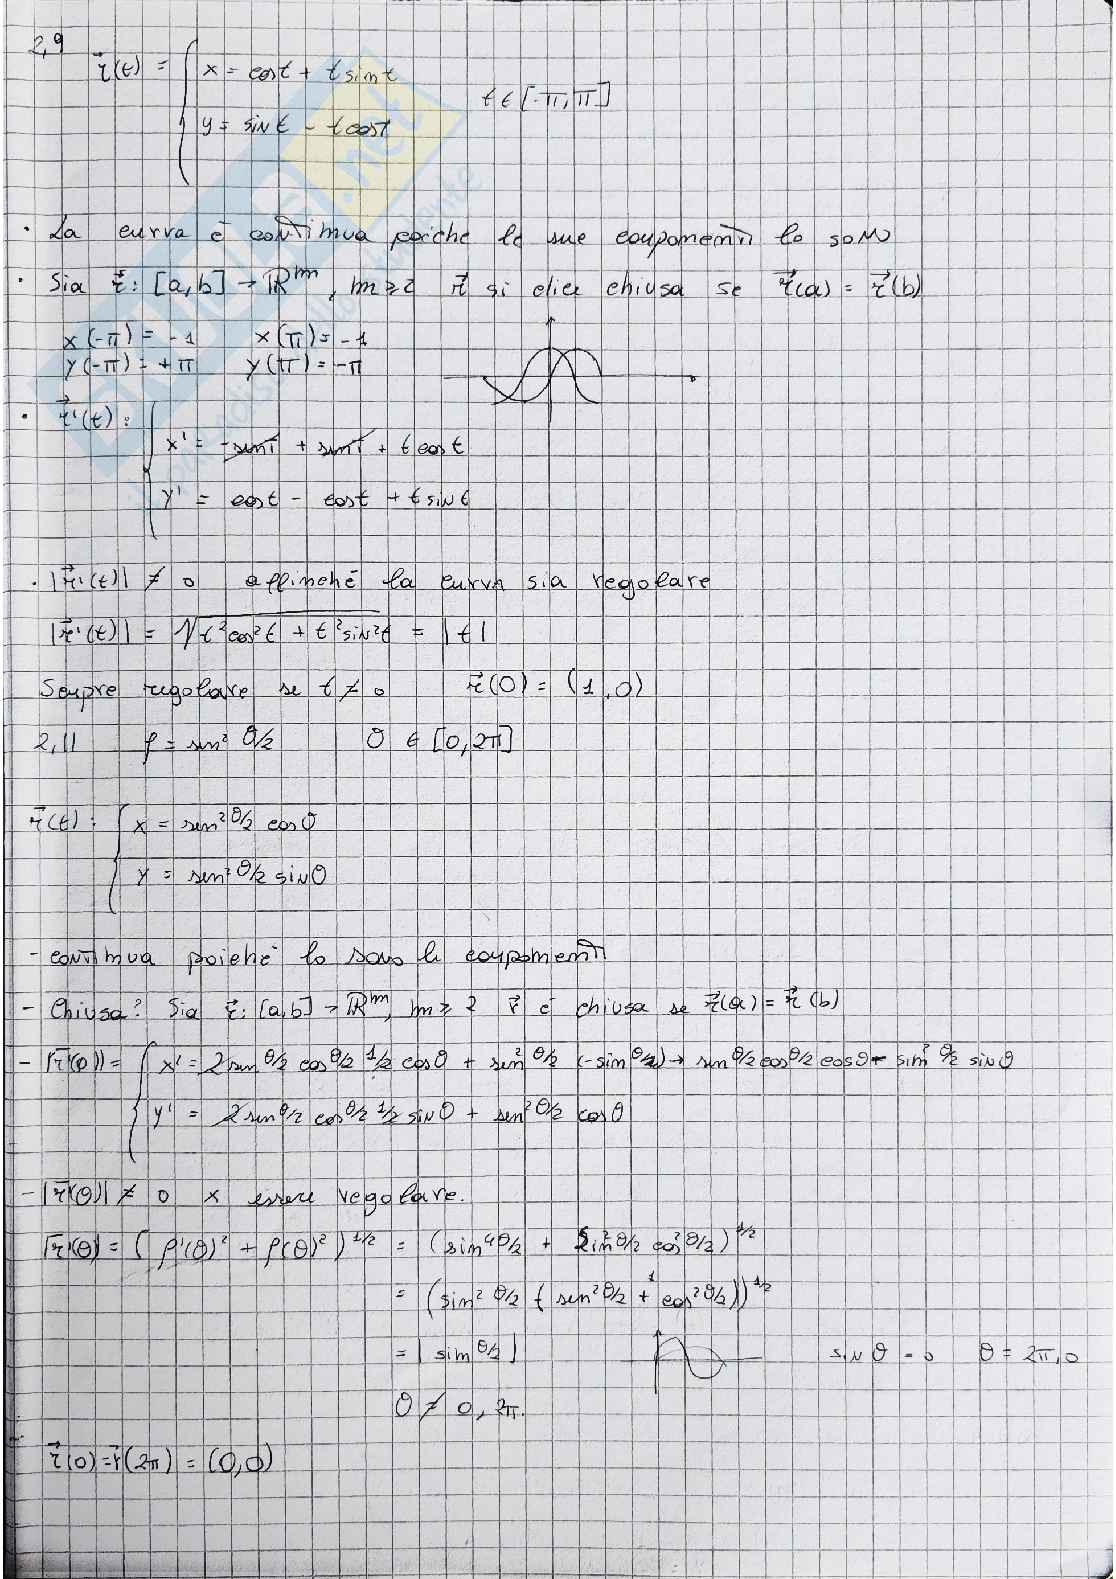 2,9
r⃗(t) = { x = cost + t sint
y = sint - t cost
t ∈ [-π, π]
· La curva è continua poiche le sue componenti lo sono
· Sia r⃗: [a,b] → ℝᵐ, m ≥ 2 r⃗ si dice chiusa se r⃗(a) = r⃗(b)
x(-π) = -1 x(π) = -1
y(-π) = +π y(π) = -π
· r⃗'(t) : { x' = -sint + sint + t cost
y' = cost - cost + t sint
· |r⃗'(t)| ≠ 0 affinché la curva sia regolare
|r⃗'(t)| = √t²cos²t + t²sin²t = |t|
Sempre regolare se t ≠ 0 r⃗(0) = (1,0)
2,11 ρ = sen² θ/2 θ ∈ [0,2π]
r⃗(t) : { x = sen² θ/2 cosθ
y = sen² θ/2 sinθ
- continua poiché lo sono le componenti
- Chiusa? Sia r⃗: [a,b] → ℝᵐ, m ≥ 2 r⃗ è chiusa se r⃗(a) = r⃗(b)
- |r⃗'(θ)| = { x' = 2 sen θ/2 cos θ/2 1/2 cosθ + sen² θ/2 (-sin θ/2) → sen θ/2 cos θ/2 cosθ - sin² θ/2 sinθ
y' = 2 sen θ/2 cos θ/2 1/2 sinθ + sen² θ/2 cosθ
- |r⃗'(θ)| ≠ 0 x essere regolare.
|r⃗'(θ)| = (ρ'(θ)² + ρ(θ)²)^1/2 = (sin⁴ θ/2 + sin² θ/2 cos² θ/2)^1/2
= (sin² θ/2 (sen² θ/2 + cos² θ/2))^1/2
1
= |sin θ/2| sinθ = 0 θ = 2π, 0
θ ≠ 0, 2π.
r⃗(0) = r⃗(2π) = (0,0)